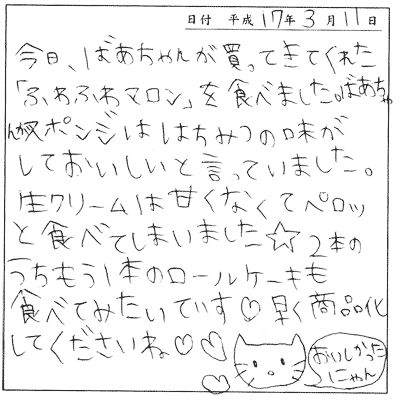 日付 平成 17年 3月 11日
今日、ばあちゃんが買ってきてくれた
「ふわふわマロン」を食べました。ばあちゃ
んがスポンジははちみつの味が
しておいしいと言っていました。
生クリームは甘くなくてペロッ
と食べてしまいました☆2本の
うちもう1本のロールケーキも
食べてみたいでいす♡早く商品化
してくださいね♡♡
おいしかった
にゃん